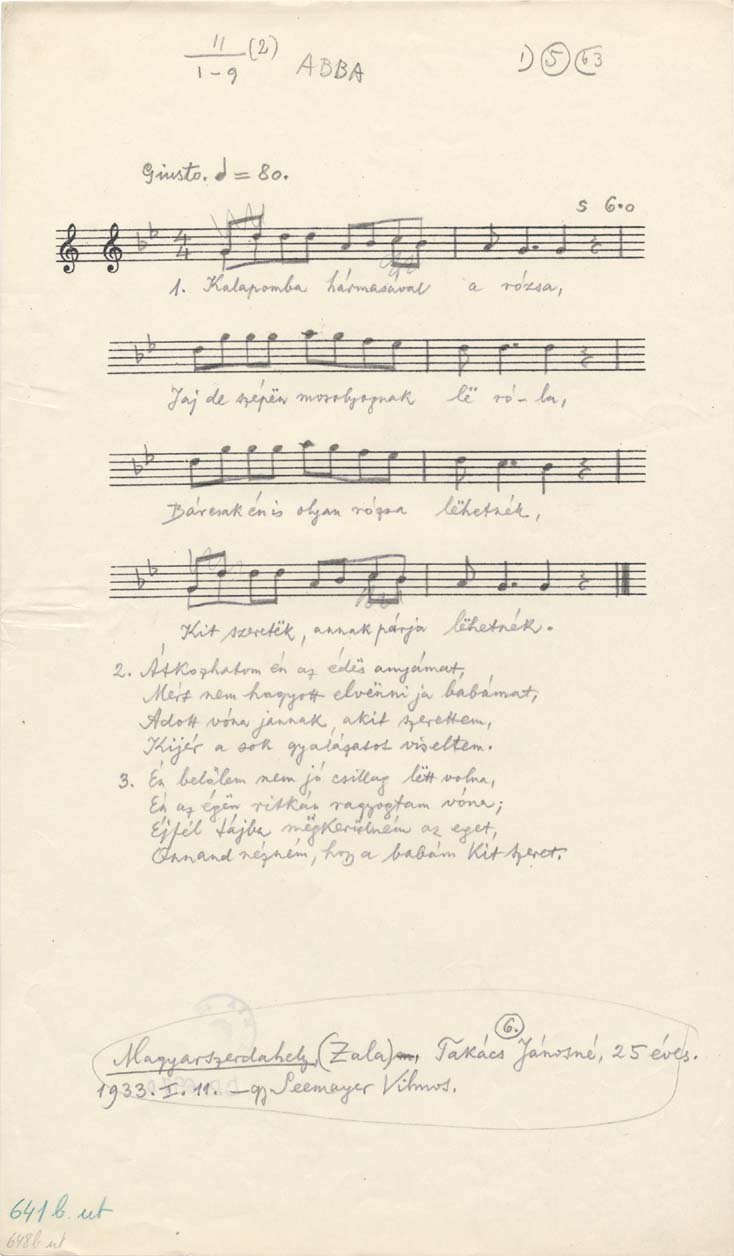 11/1-9 (2) ABBA 1) 5 63
Giusto. ♩ = 80.
s 6.0
4/4
1. Kalapomba hármasával a rózsa,
Jaj de szépën mosolyognak lë ró-la,
Bárcsak én is olyan rózsa lëhetnék,
Kit szeretëk, annak párja lëhetnék.
2. Átkozhatom én az édës anyámat,
Mért nem hagyott elvënni ja babámat,
Adott vóna jannak, akit szerettem,
Kijér a sok gyalázatot viseltem.
3. Én belőlem nem jó csillag lëtt volna,
Én az égën ritkán ragyogtam vóna;
Éjfél tájba mëgkerülném az eget,
Onnand nézném, hogy a babám kit szeret.
6.
Magyarszerdahely, (Zala) Takács Jánosné, 25 éves.
1933. I. 11. — gy Seemayer Vilmos.
641 b. ut
648 b ut